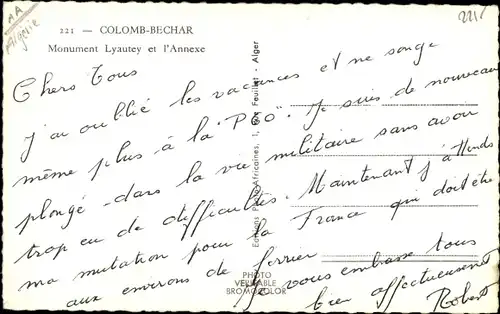 AA
Algérie
221
221 — COLOMB-BECHAR
Monument Lyautey et l'Annexe
Chers Tous
J'ai oublié les vacances et ne songe
même plus à la "P¢O". Je suis de nouveau
plongé dans la vie militaire sans avoir
trop eu de difficultés. Maintenant j'attends
ma mutation pour la France qui doit être
aux environs de février
Je vous embrasse tous
bien affectueusement
Robert
Editions Photo-Africaines, 1, Feuillet - Alger
PHOTO
VERITABLE
BROMOCOLOR